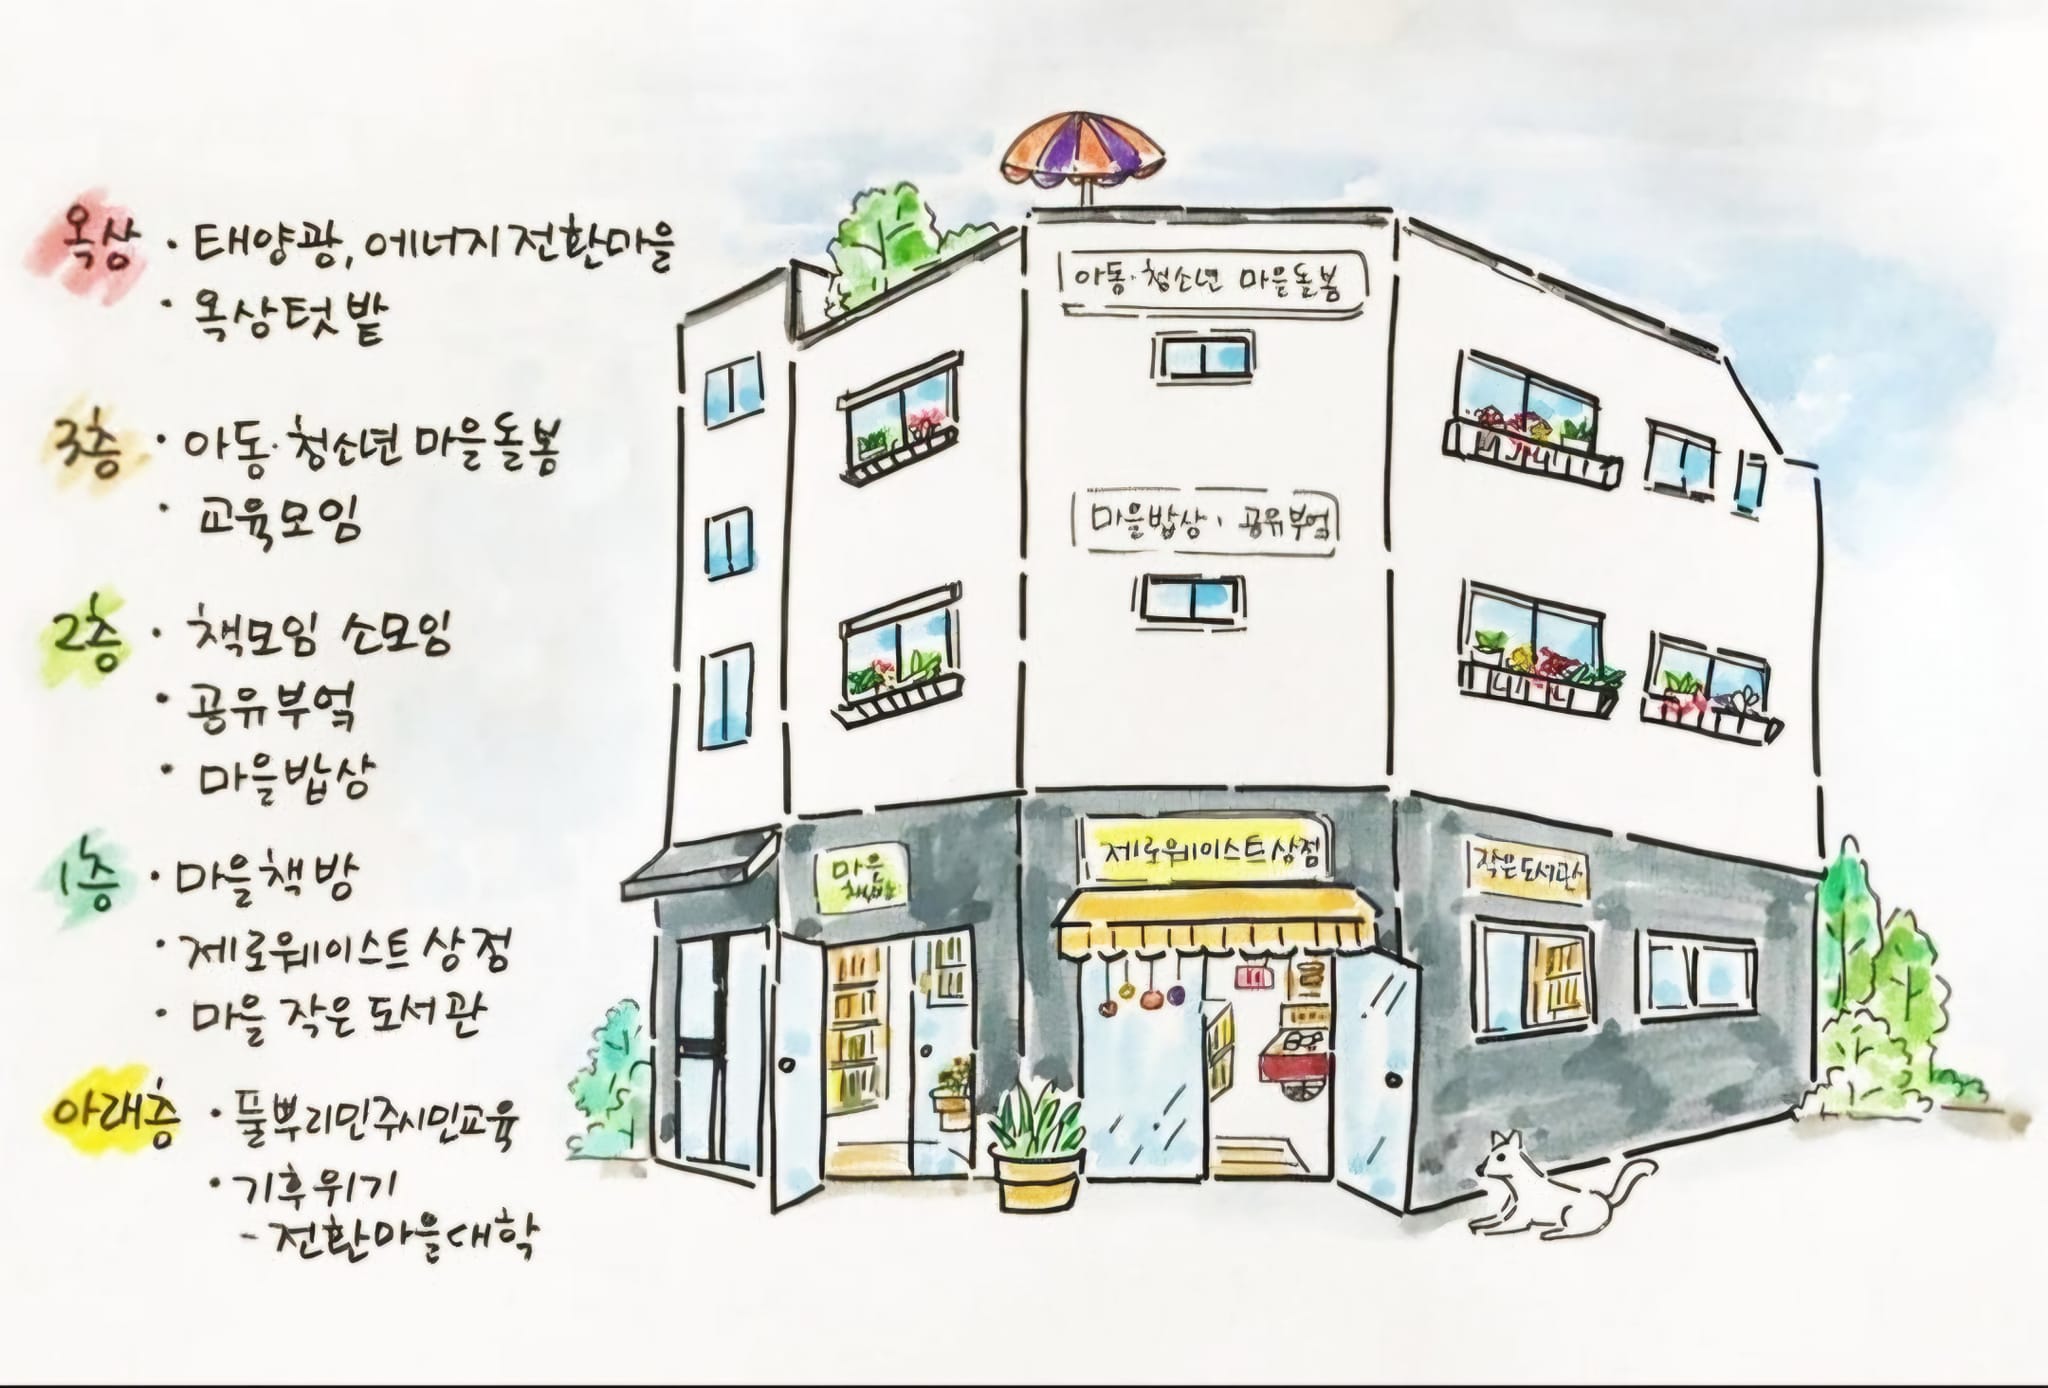 옥상 · 태양광, 에너지전환마을
· 옥상텃밭
3층 · 아동·청소년 마을돌봄
· 교육모임
2층 · 책모임 소모임
· 공유부엌
· 마을밥상
1층 · 마을책방
· 제로웨이스트상점
· 마을 작은도서관
아래층 · 풀뿌리민주시민교육
· 기후위기
- 전환마을대학
아동·청소년 마을돌봄
마을밥상, 공유부엌
마을
책방
제로웨이스트상점
작은도서관